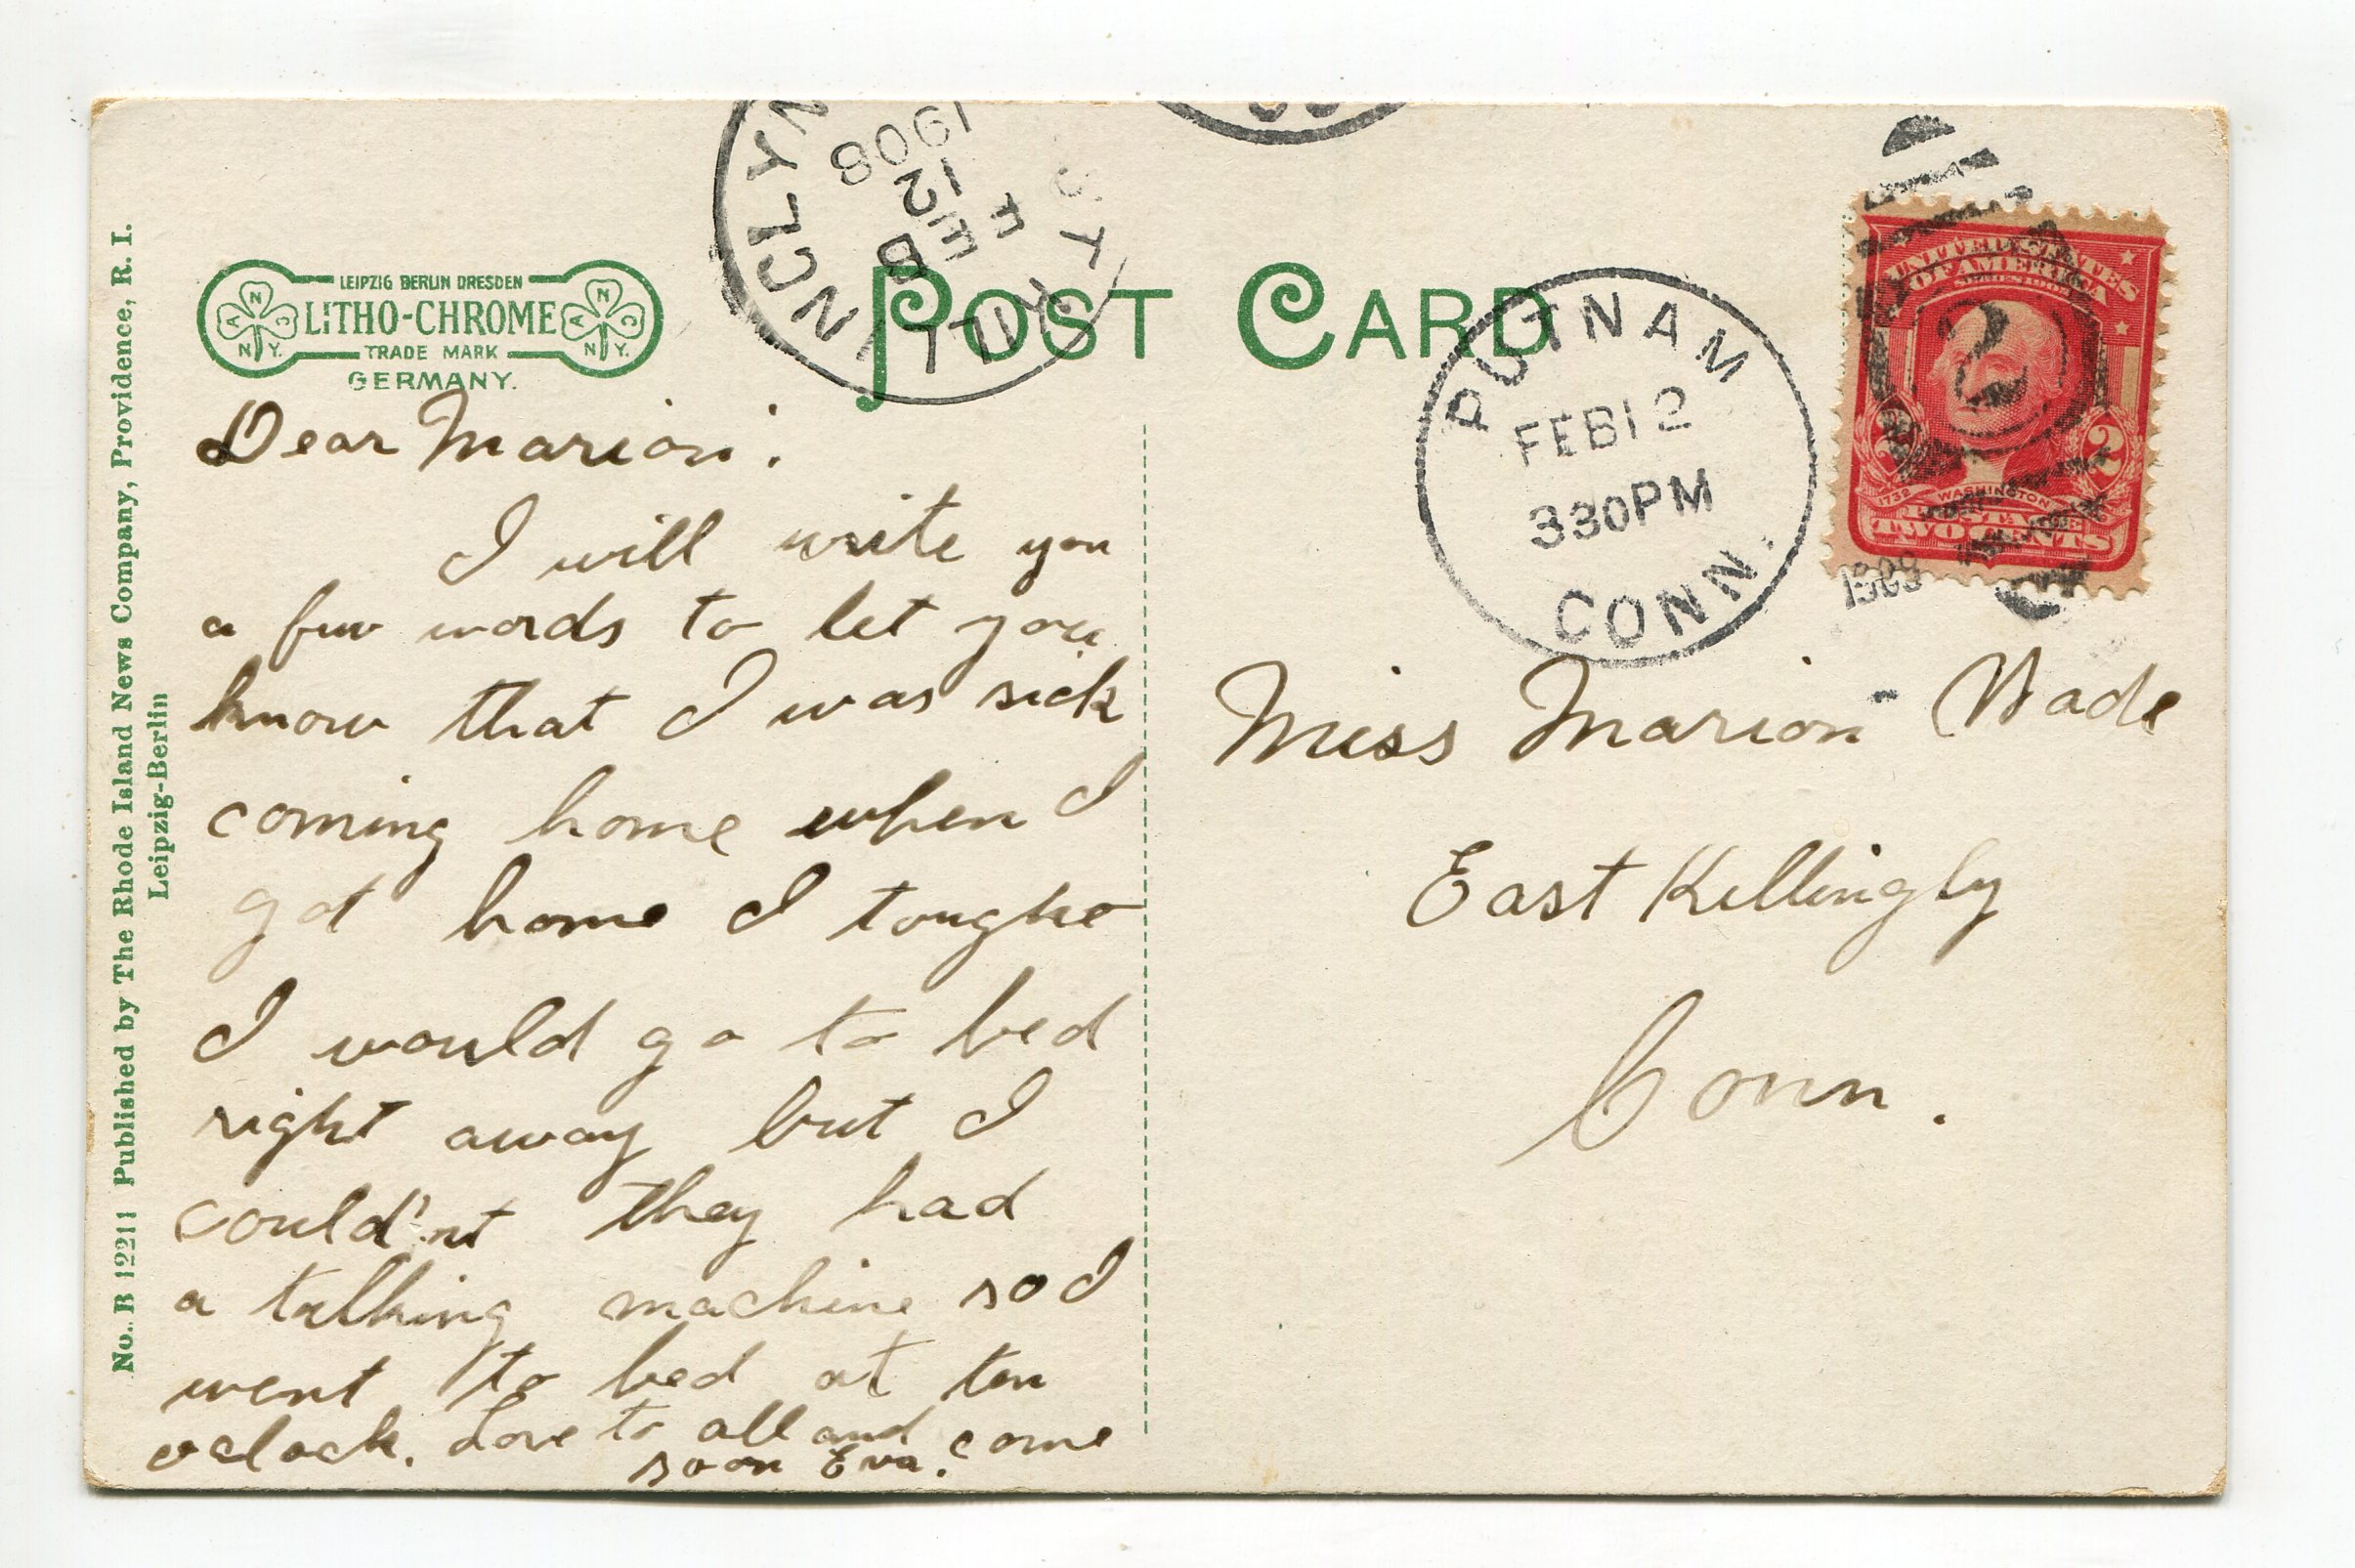 No. B 12211 Published by The Rhode Island News Company, Providence, R. I.
Leipzig-Berlin
LEIPZIG BERLIN DRESDEN
LITHO-CHROME
TRADE MARK
GERMANY.
A N C
N Y.
A N C
N Y.
POST CARD
1908
12
FEB
PUTNAM
FEB 12
330PM
CONN.
1908
UNITED STATES
OF AMERICA
SERIES 1902
2
2
2
1732 WASHINGTON
POSTAGE
TWO CENTS
Dear Marion:
I will write you
a few words to let you
know that I was sick
coming home when I
got home I toughe
I would go to bed
right away but I
could'nt they had
a talking machine so I
went to bed at ten
oclock. Love to all and come
soon Eva.
Miss Marion Wade
East Killingly
Conn.